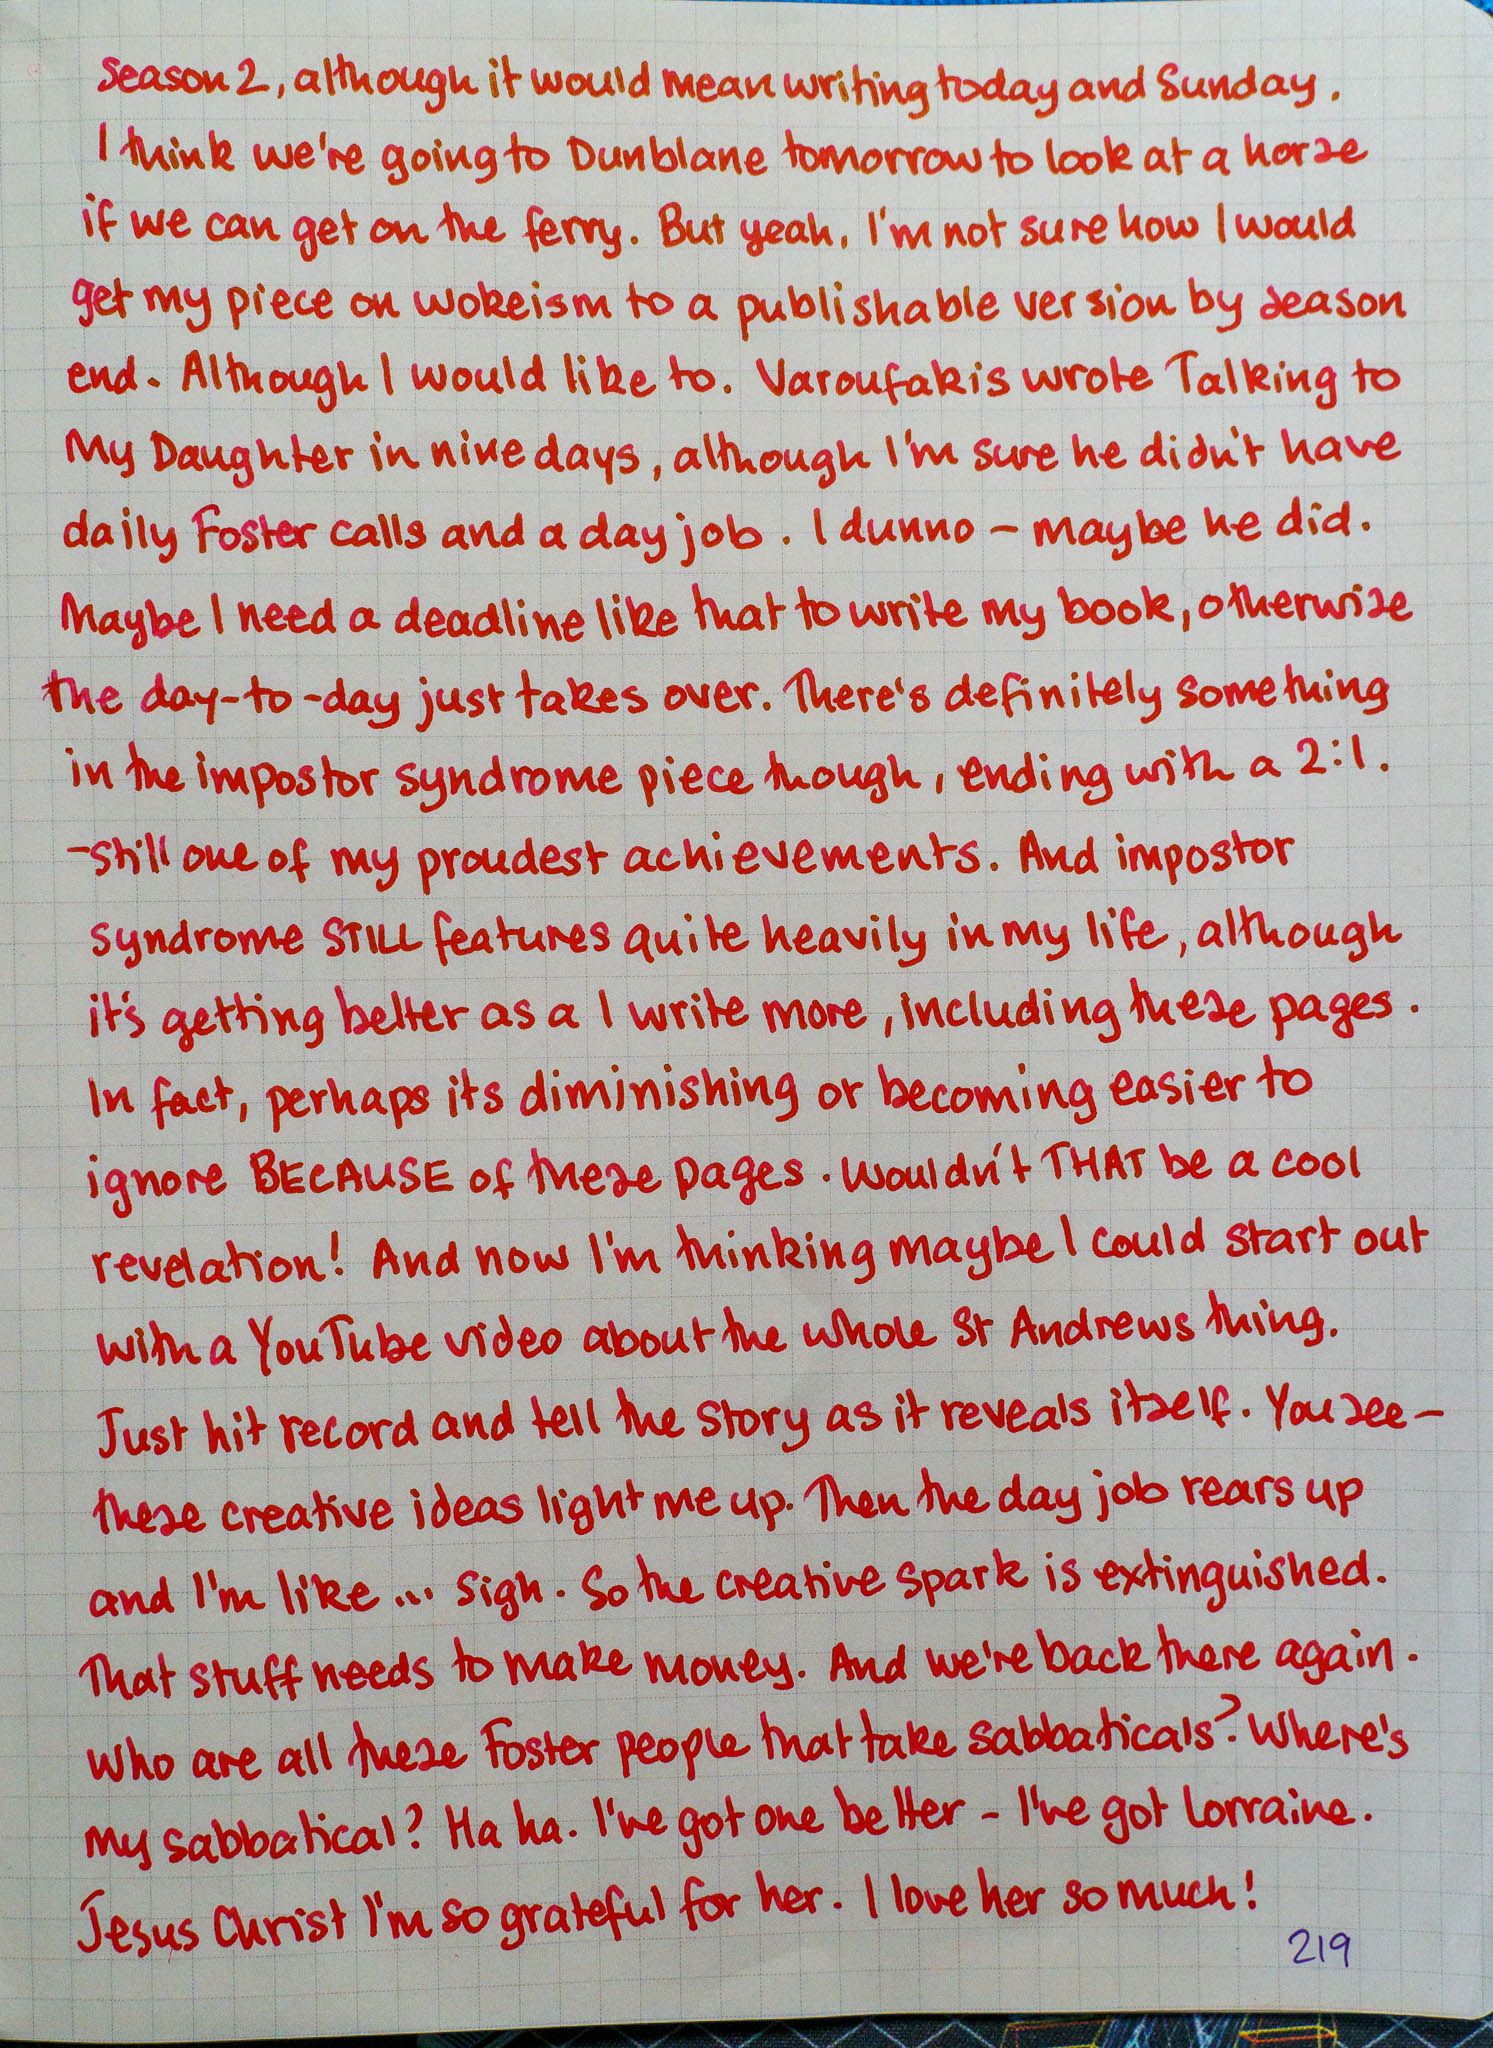 Season 2, although it would mean writing today and Sunday.
I think we're going to Dunblane tomorrow to look at a horse
if we can get on the ferry. But yeah, I'm not sure how I would
get my piece on wokeism to a publishable version by season
end. Although I would like to. Varoufakis wrote Talking to
My Daughter in nine days, although I'm sure he didn't have
daily Foster calls and a day job. I dunno - maybe he did.
Maybe I need a deadline like that to write my book, otherwise
the day-to-day just takes over. There's definitely something
in the impostor syndrome piece though, ending with a 2:1.
-still one of my proudest achievements. And impostor
syndrome STILL features quite heavily in my life, although
it's getting better as a I write more, including these pages.
In fact, perhaps its diminishing or becoming easier to
ignore BECAUSE of these pages. Wouldn't THAT be a cool
revelation! And now I'm thinking maybe I could start out
with a YouTube video about the whole St Andrews thing.
Just hit record and tell the story as it reveals itself. You see -
these creative ideas light me up. Then the day job rears up
and I'm like ... sigh. So the creative spark is extinguished.
That stuff needs to make money. And we're back there again.
Who are all these Foster people that take sabbaticals? Where's
my sabbatical? Ha ha. I've got one better - I've got Lorraine.
Jesus Christ I'm so grateful for her. I love her so much!
219